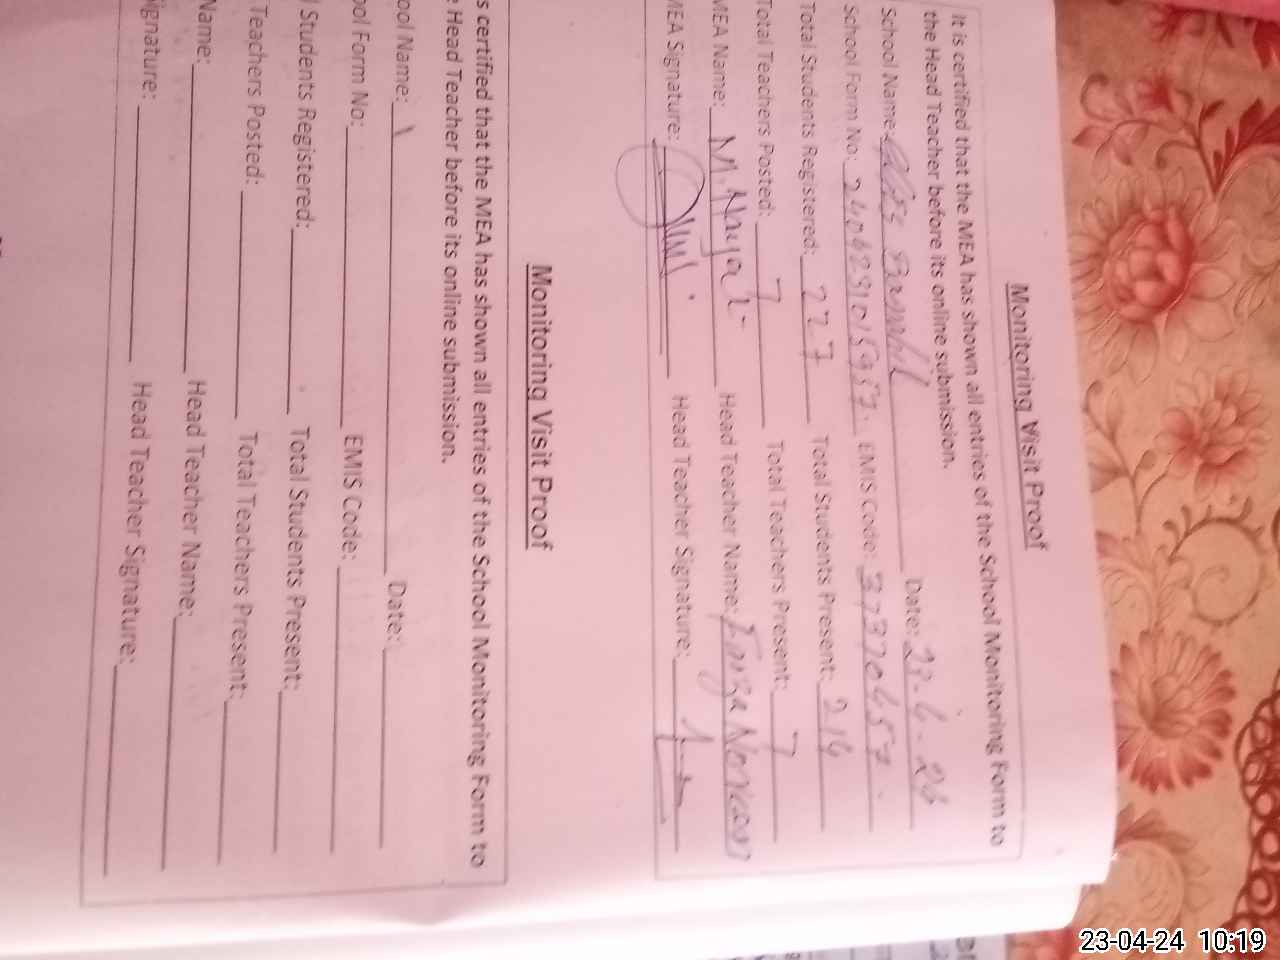 Monitoring Visit Proof
It is certified that the MEA has shown all entries of the School Monitoring Form to
the Head Teacher before its online submission.
School Name: Date: 23-4-24
School Form No: EMIS Code: 37370457
Total Students Registered: 227 Total Students Present: 214
Total Teachers Posted: 7 Total Teachers Present: 7
MEA Name: M. Head Teacher Name:
MEA Signature: Head Teacher Signature:
Monitoring Visit Proof
s certified that the MEA has shown all entries of the School Monitoring Form to
e Head Teacher before its online submission.
ool Name: Date:
ool Form No: EMIS Code:
l Students Registered: Total Students Present:
Teachers Posted: Total Teachers Present:
Name: Head Teacher Name:
ignature: Head Teacher Signature:
23-04-24 10:19